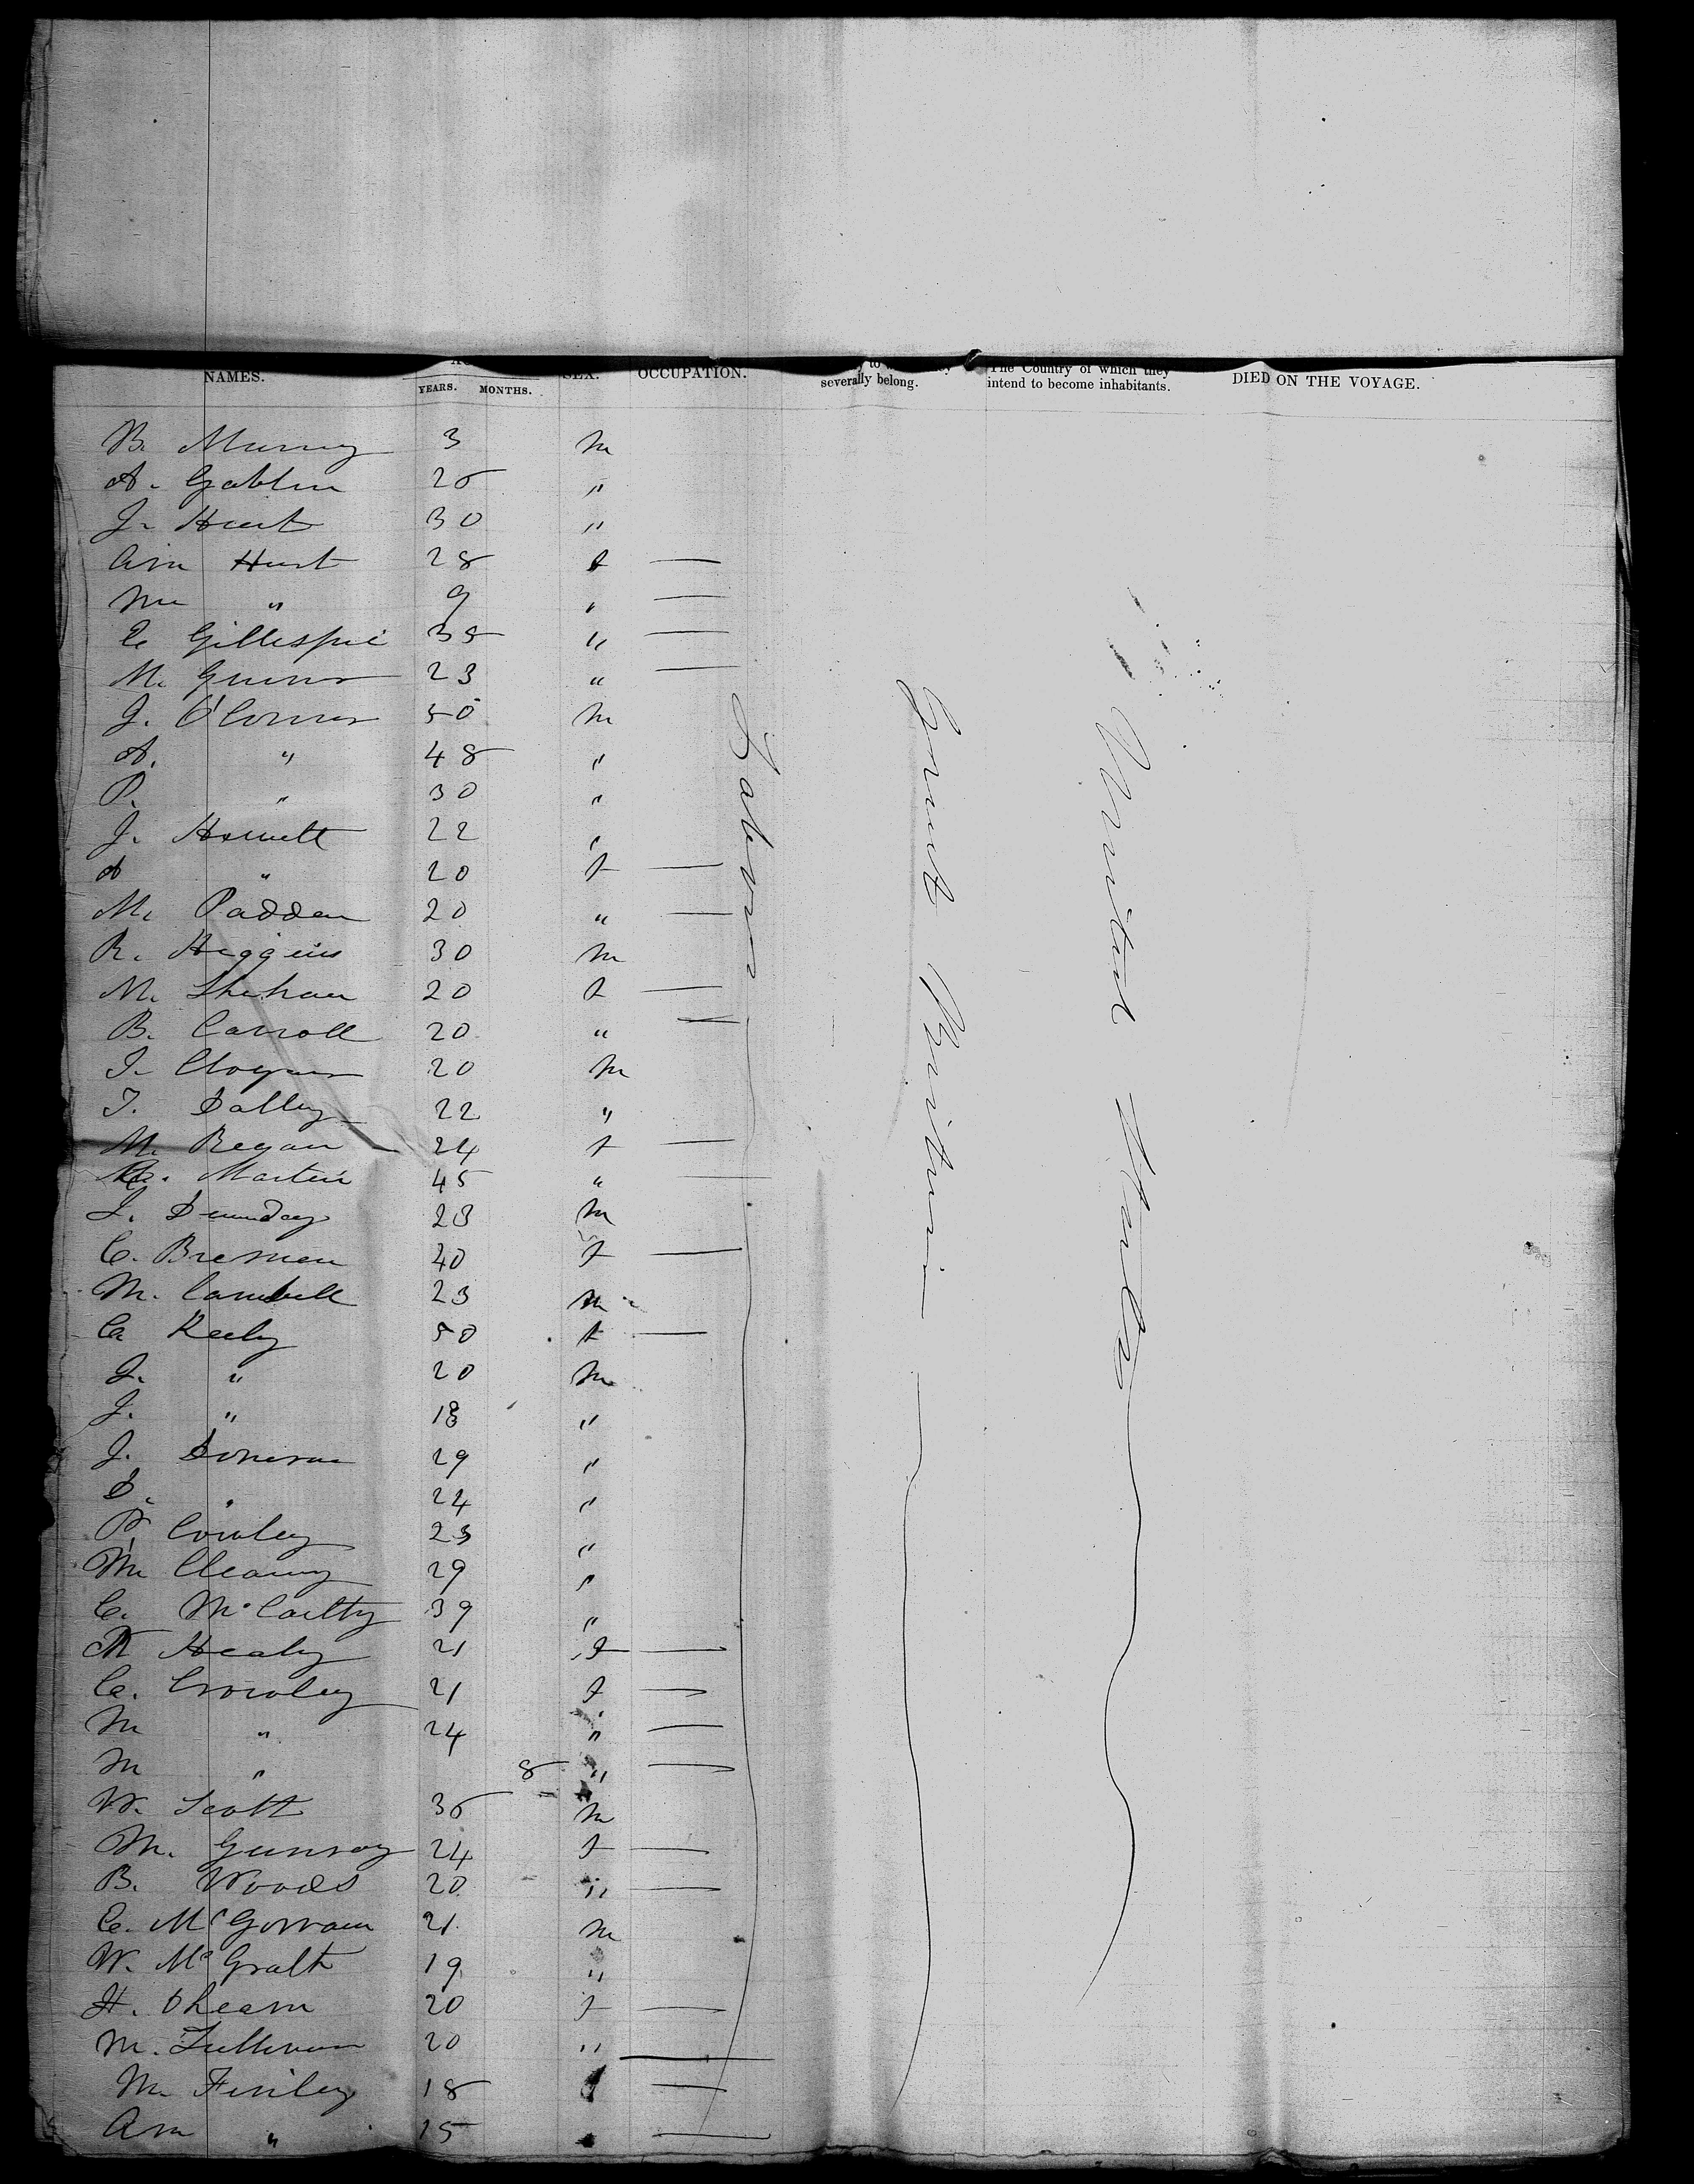 NAMES. YEARS. MONTHS. SEX. OCCUPATION. severally belong. The Country of which they intend to become inhabitants. DIED ON THE VOYAGE.
B. Murray 3 m
A. Gablin 25 "
J. Hunt 30 "
Ann Hunt 28 f —
" 9 " —
Gillespie 35 " —
M. 23 " —
J. O'Connor 50 m
A. " 48 "
P. " 30 "
J. 22 "
A " 20 f —
M. Padden 20 " —
R. Higgins 30 m
M. Shehan 20 f —
B. Carroll 20 " —
20 m
T. Dalley 22 "
M. Regan 24 f —
Martin 45 " —
23 m
C. Bresnen 40 f —
M. Cambell 23 m
Ca 50 f —
J. " 20 m
J. " 18 "
J. Donovan 29 "
D. " 24 "
P. 23 "
M Cleary 29 "
C. McCarthy 39 "
Healy 21 f —
Ca. Crowley 21 f —
M " 24 " —
M " 8 " —
W. Scott 36 m
M. 24 f —
B. Woods 20 " —
C. McGovran 21 m
W. McGrath 19 "
H. Ohearn 20 f —
M. Sullivan 20 " —
M. Finley 18 —
Ann " 15 —
Laborer
Great Britain
United States